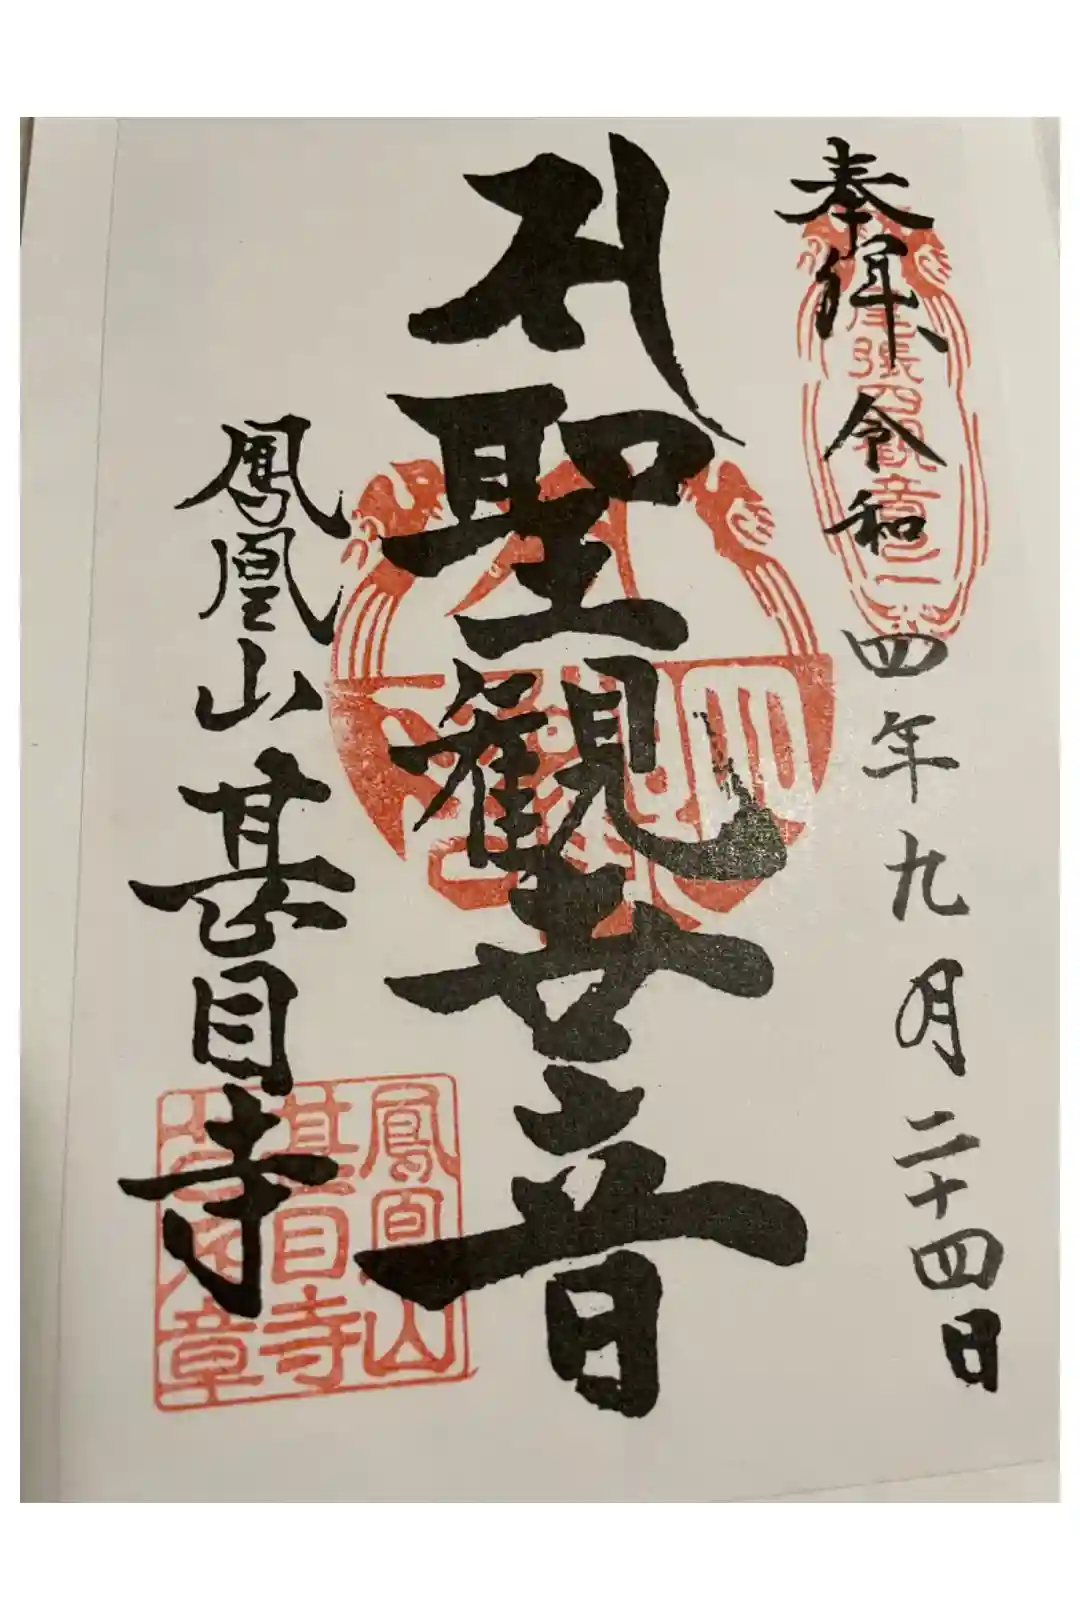 奉拝 令和四年九月二十四日
尾張四観音之一
聖観世音
鳳凰山 甚目寺
鳳凰山
甚目寺
章